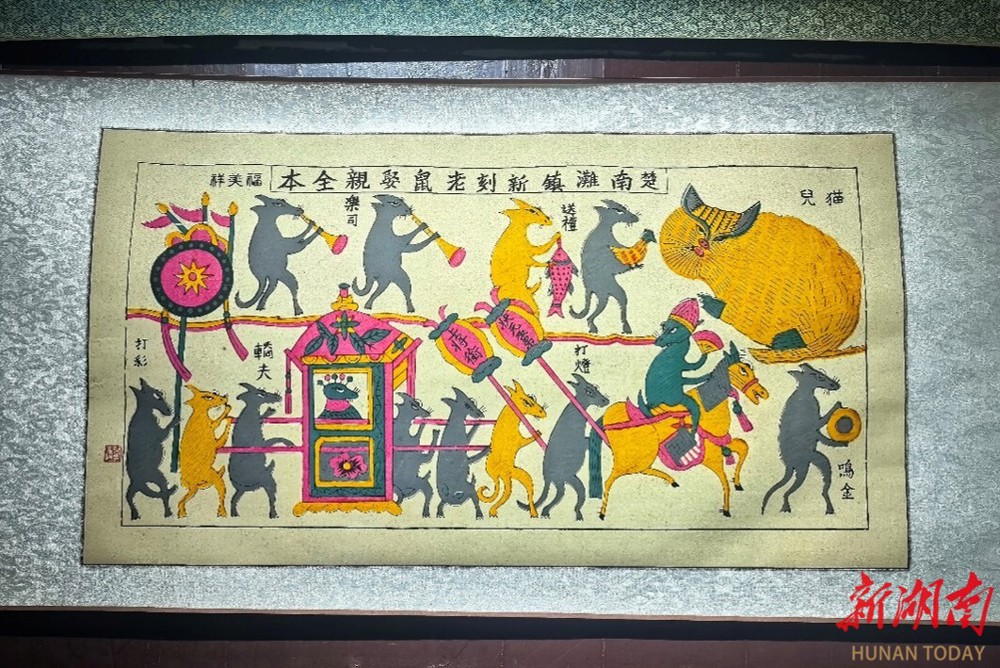 楚南灘鎮新刻老鼠娶親全本
福美祥
猫兒
送禮
樂司
打彩
轎夫
打燈
鳴金
新湖南
HUNAN TODAY